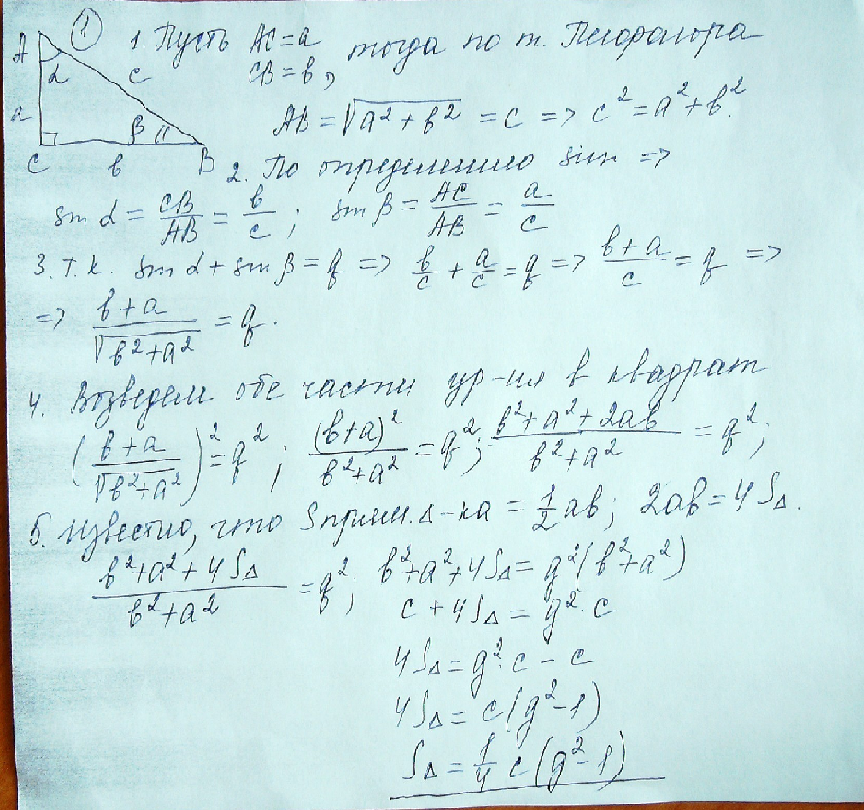 ① 1. Пусть AC = a
CB = в, тогда по т. Пифагора
A α a c β C в B
AB = √(a² + в²) = c => c² = a² + в².
2. По определению sin =>
sin α = CB/AB = в/c ; sin β = AC/AB = a/c
3. т.к. sin α + sin β = q => в/c + a/c = q => (в + a)/c = q =>
=> (в + a)/√(в² + a²) = q.
4. Возведем обе части ур-ия в квадрат
((в + a)/√(в² + a²))² = q² ; (в + a)²/(в² + a²) = q² ; (в² + a² + 2aв)/(в² + a²) = q² ;
5. Известно, что S прям. Δ-ка = 1/2 aв ; 2aв = 4S△.
(в² + a² + 4S△)/(в² + a²) = q² ; в² + a² + 4S△ = q²(в² + a²)
c + 4S△ = q² · c
4S△ = q² · c − c
4S△ = c(q² − 1)
S△ = 1/4 c(q² − 1)